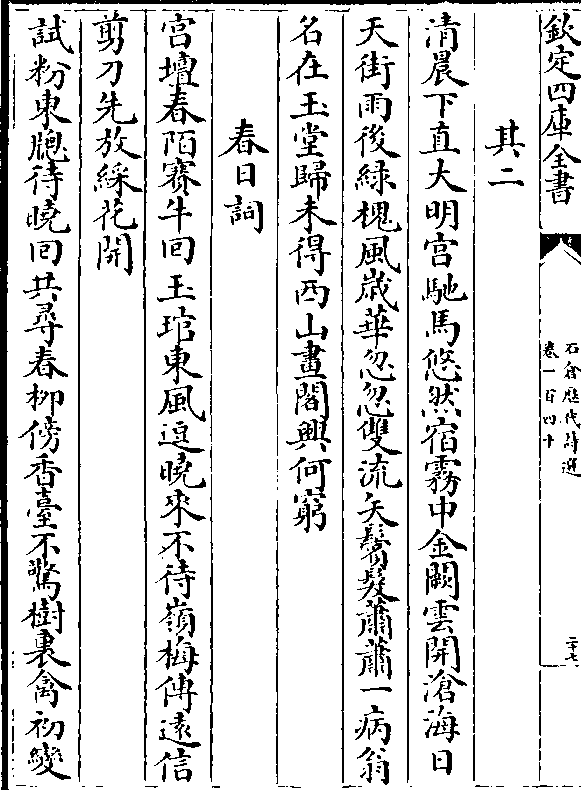 欽定四庫全書
石倉歷代詩選
卷一百四十
二十七
其二
清晨下直大明宫馳馬悠然宿霧中金闕雲開滄海日
天街雨後緑槐風歳華忽忽雙流矢鬂髮蕭蕭一病翁
名在玉堂歸未得西山畫閣興何窮
春日詞
宫壇春陌賽牛回玉琯東風逗曉來不待嶺梅傳遠信
剪刀先放綵花開
試粉東牕待曉回共尋春柳傍香臺不驚樹裏禽初變